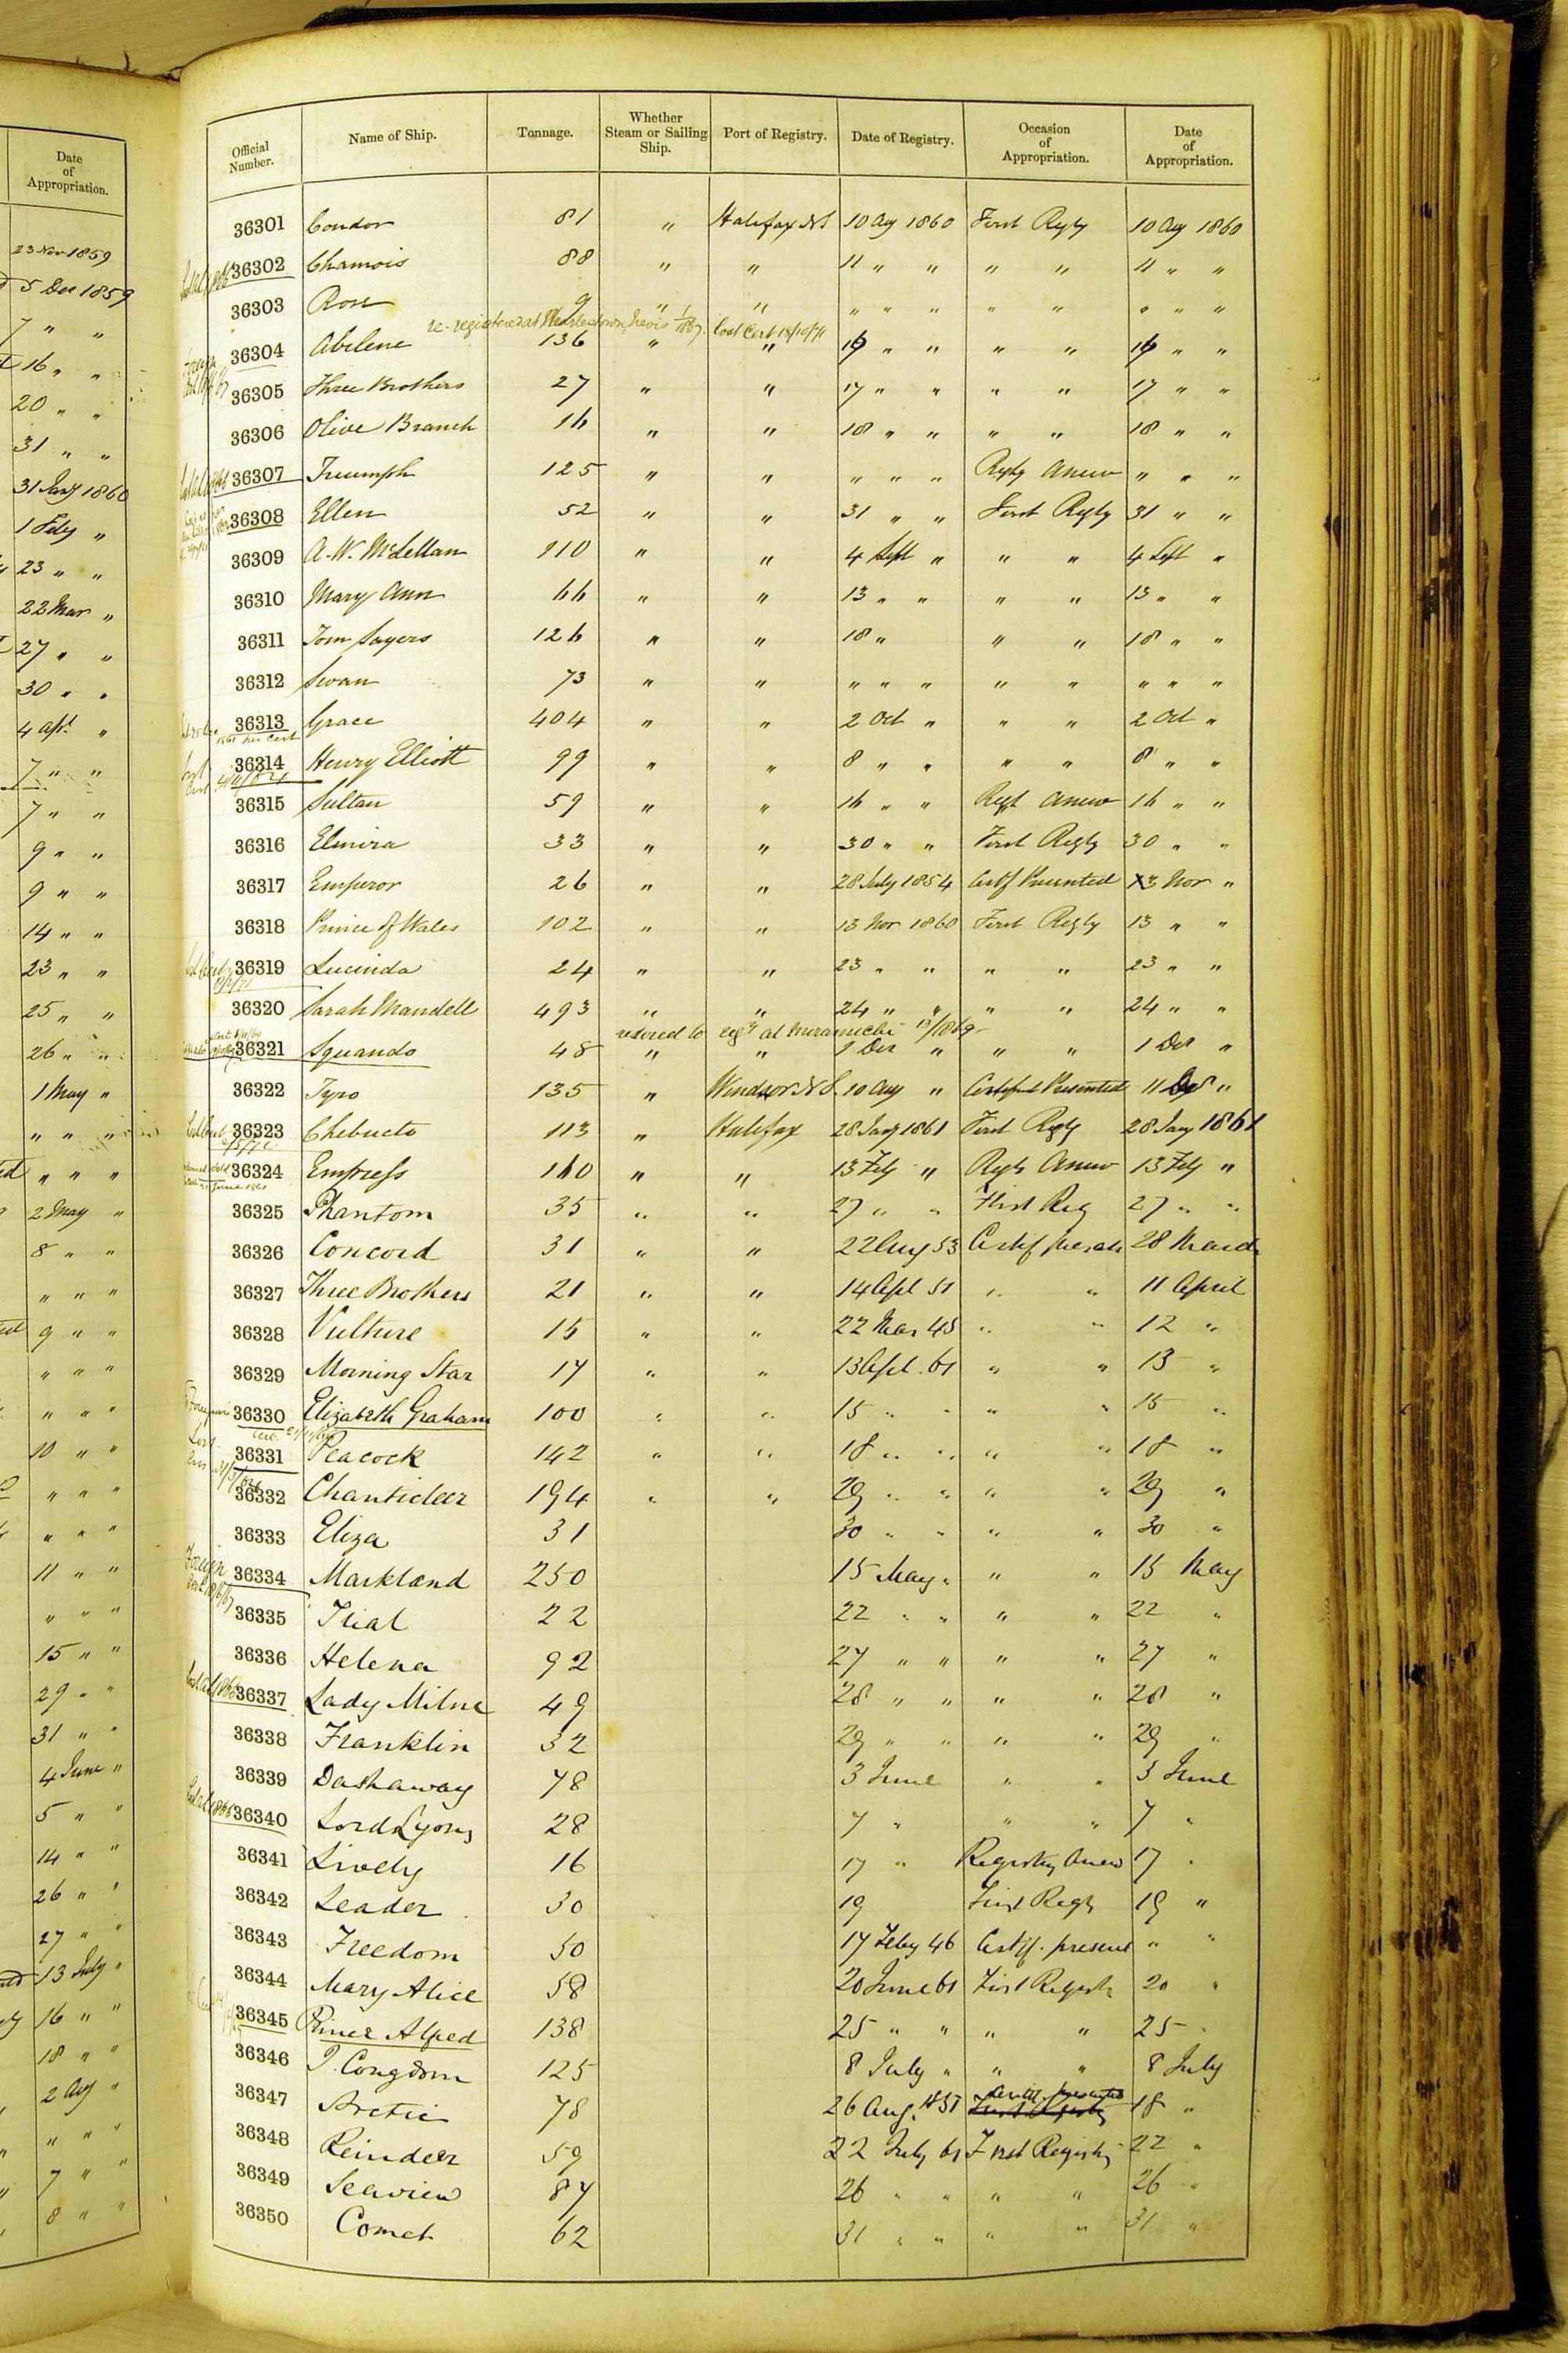 Date of Appropriation.
23 Nov 1859
5 Dec 1859
7 " "
16 " "
20 " "
31 " "
31 Jany 1860
1 Feby "
23 " "
22 Mar "
27 " "
30 " "
4 Apl. "
7 " "
7 " "
9 " "
9 " "
14 " "
23 " "
25 " "
26 " "
1 May "
" " "
" " "
2 May "
8 " "
" " "
9 " "
" " "
" " "
10 " "
" " "
" " "
11 " "
" " "
15 " "
29 " "
31 " "
4 June "
5 " "
14 " "
26 " "
27 " "
13 July "
16 " "
18 " "
2 Aug "
" " "
7 " "
8 " "
Official Number. Name of Ship. Tonnage. Whether Steam or Sailing Ship. Port of Registry. Date of Registry. Occasion of Appropriation. Date of Appropriation.
36301 Condor 81 " Halifax NS 10 Aug 1860 First Regty 10 Aug 1860
36302 Chamois 88 " " 11 " " " " 11 " "
36303 Rose 9 " " " " " " " " " "
re-registered at Charlestown Nevis 1/1867. Lost Cert 18/10/71
36304 Abilene 136 " " 16 " " " " 16 " "
36305 Three Brothers 27 " " 17 " " " " 17 " "
36306 Olive Branch 16 " " 18 " " " " 18 " "
36307 Triumph 125 " " " " " Regty Anew " " "
36308 Ellen 52 " " 31 " " First Regty 31 " "
36309 A. W. McLellan 110 " " 4 Sept " " " 4 Sept "
36310 Mary Ann 66 " " 13 " " " " 13 " "
36311 Tom Sayers 126 " " 18 " " " 18 " "
36312 Swan 73 " " " " " " " " " "
36313 Grace 404 " " 2 Oct " " " 2 Oct "
36314 Henry Elliott 99 " " 8 " " " " 8 " "
36315 Sultan 59 " " 16 " " Regt Anew 16 " "
36316 Elmira 33 " " 30 " " First Regty 30 " "
36317 Emperor 26 " " 28 July 1854 Certf Presented 13 Nov "
36318 Prince of Wales 102 " " 13 Nov 1860 First Regty 13 " "
36319 Lucinda 24 " " 23 " " " " 23 " "
36320 Sarah Mandell 493 " " 24 " " " " 24 " "
restored to regy at Miramichi 13/1869
36321 Squando 48 " " 1 Dec " " " 1 Dec "
36322 Tyro 135 " Windsor N S. 10 Aug " Certificate Presented 11 Dec "
36323 Chebucto 113 " Halifax 28 Jany 1861 First Regty 28 Jany 1861
36324 Empress 160 " " 13 Feby " Regty Anew 13 Feby "
36325 Phantom 35 " " 27 " " First Reg 27 " "
36326 Concord 31 " " 22 Aug 53 Certif presen 28 March
36327 Three Brothers 21 " " 14 Apl 51 " " 11 April
36328 Vulture 15 " " 22 Mar 45 " " 12 "
36329 Morning Star 17 " " 13 Apl. 61 " " 13 "
36330 Elizabeth Graham 100 " " 15 " " " " 15 "
36331 Peacock 142 " " 18 " " " " 18 "
36332 Chanticleer 194 " " 29 " " " " 29 "
36333 Eliza 31 30 " " " " 30 "
36334 Markland 250 15 May " " " 15 May
36335 Trial 22 22 " " " " 22 "
36336 Helena 92 27 " " " " 27 "
36337 Lady Milne 49 28 " " " " 28 "
36338 Franklin 32 29 " " " " 29 "
36339 Dashaway 78 3 June " " 3 June
36340 Lord Lyons 28 7 " " " 7 "
36341 Lively 16 17 " Registry Anew 17 "
36342 Leader 30 19 First Regty 19 "
36343 Freedom 50 17 Feby 46 Certif. present " "
36344 Mary Alice 58 20 June 61 First Registr 20 "
36345 Prince Alfred 138 25 " " " " 25 "
36346 J. Congdom 125 8 July " " " 8 July
36347 Arctic 78 26 Aug. 1857 Certif. presented 18 "
36348 Reindeer 59 22 July 61 First Registry 22 "
36349 Seaview 87 26 " " " " 26 "
36350 Comet 62 31 " " " " 31 "